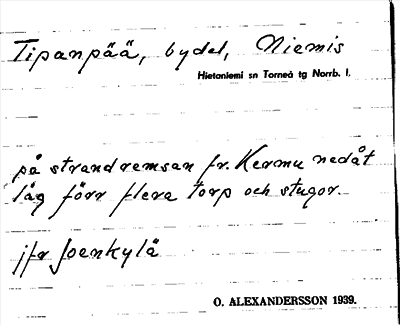 Tipanpää, bydel, Niemis
Hietaniemi sn Torneå tg Norrb. l.
på strandremsan fr. Kermu nedåt
låg förr flera torp och stugor.
jfr Joenkylä
O. ALEXANDERSSON 1939.